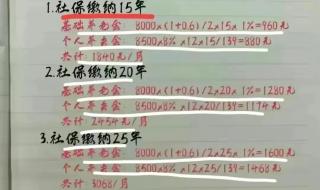 1.社保缴纳15年
基础养老金: 8000×(1+0.6)/2×15×1%=960元
个人养老金: 8500×8%×12×15/139=880元
共计: 1840元/月
2.社保缴纳20年
基础养老金: 8000×(1+0.6)/2×20×1%=1280元
个人养老金: 8500×8%×12×20/139=1174元
共计: 2454元/月
3.社保缴纳25年
基础养老金: 8000×(1+0.6)/2×25×1%=1600元
个人养老金: 8500×8%×12×25/139=1468元
共计: 3068/月